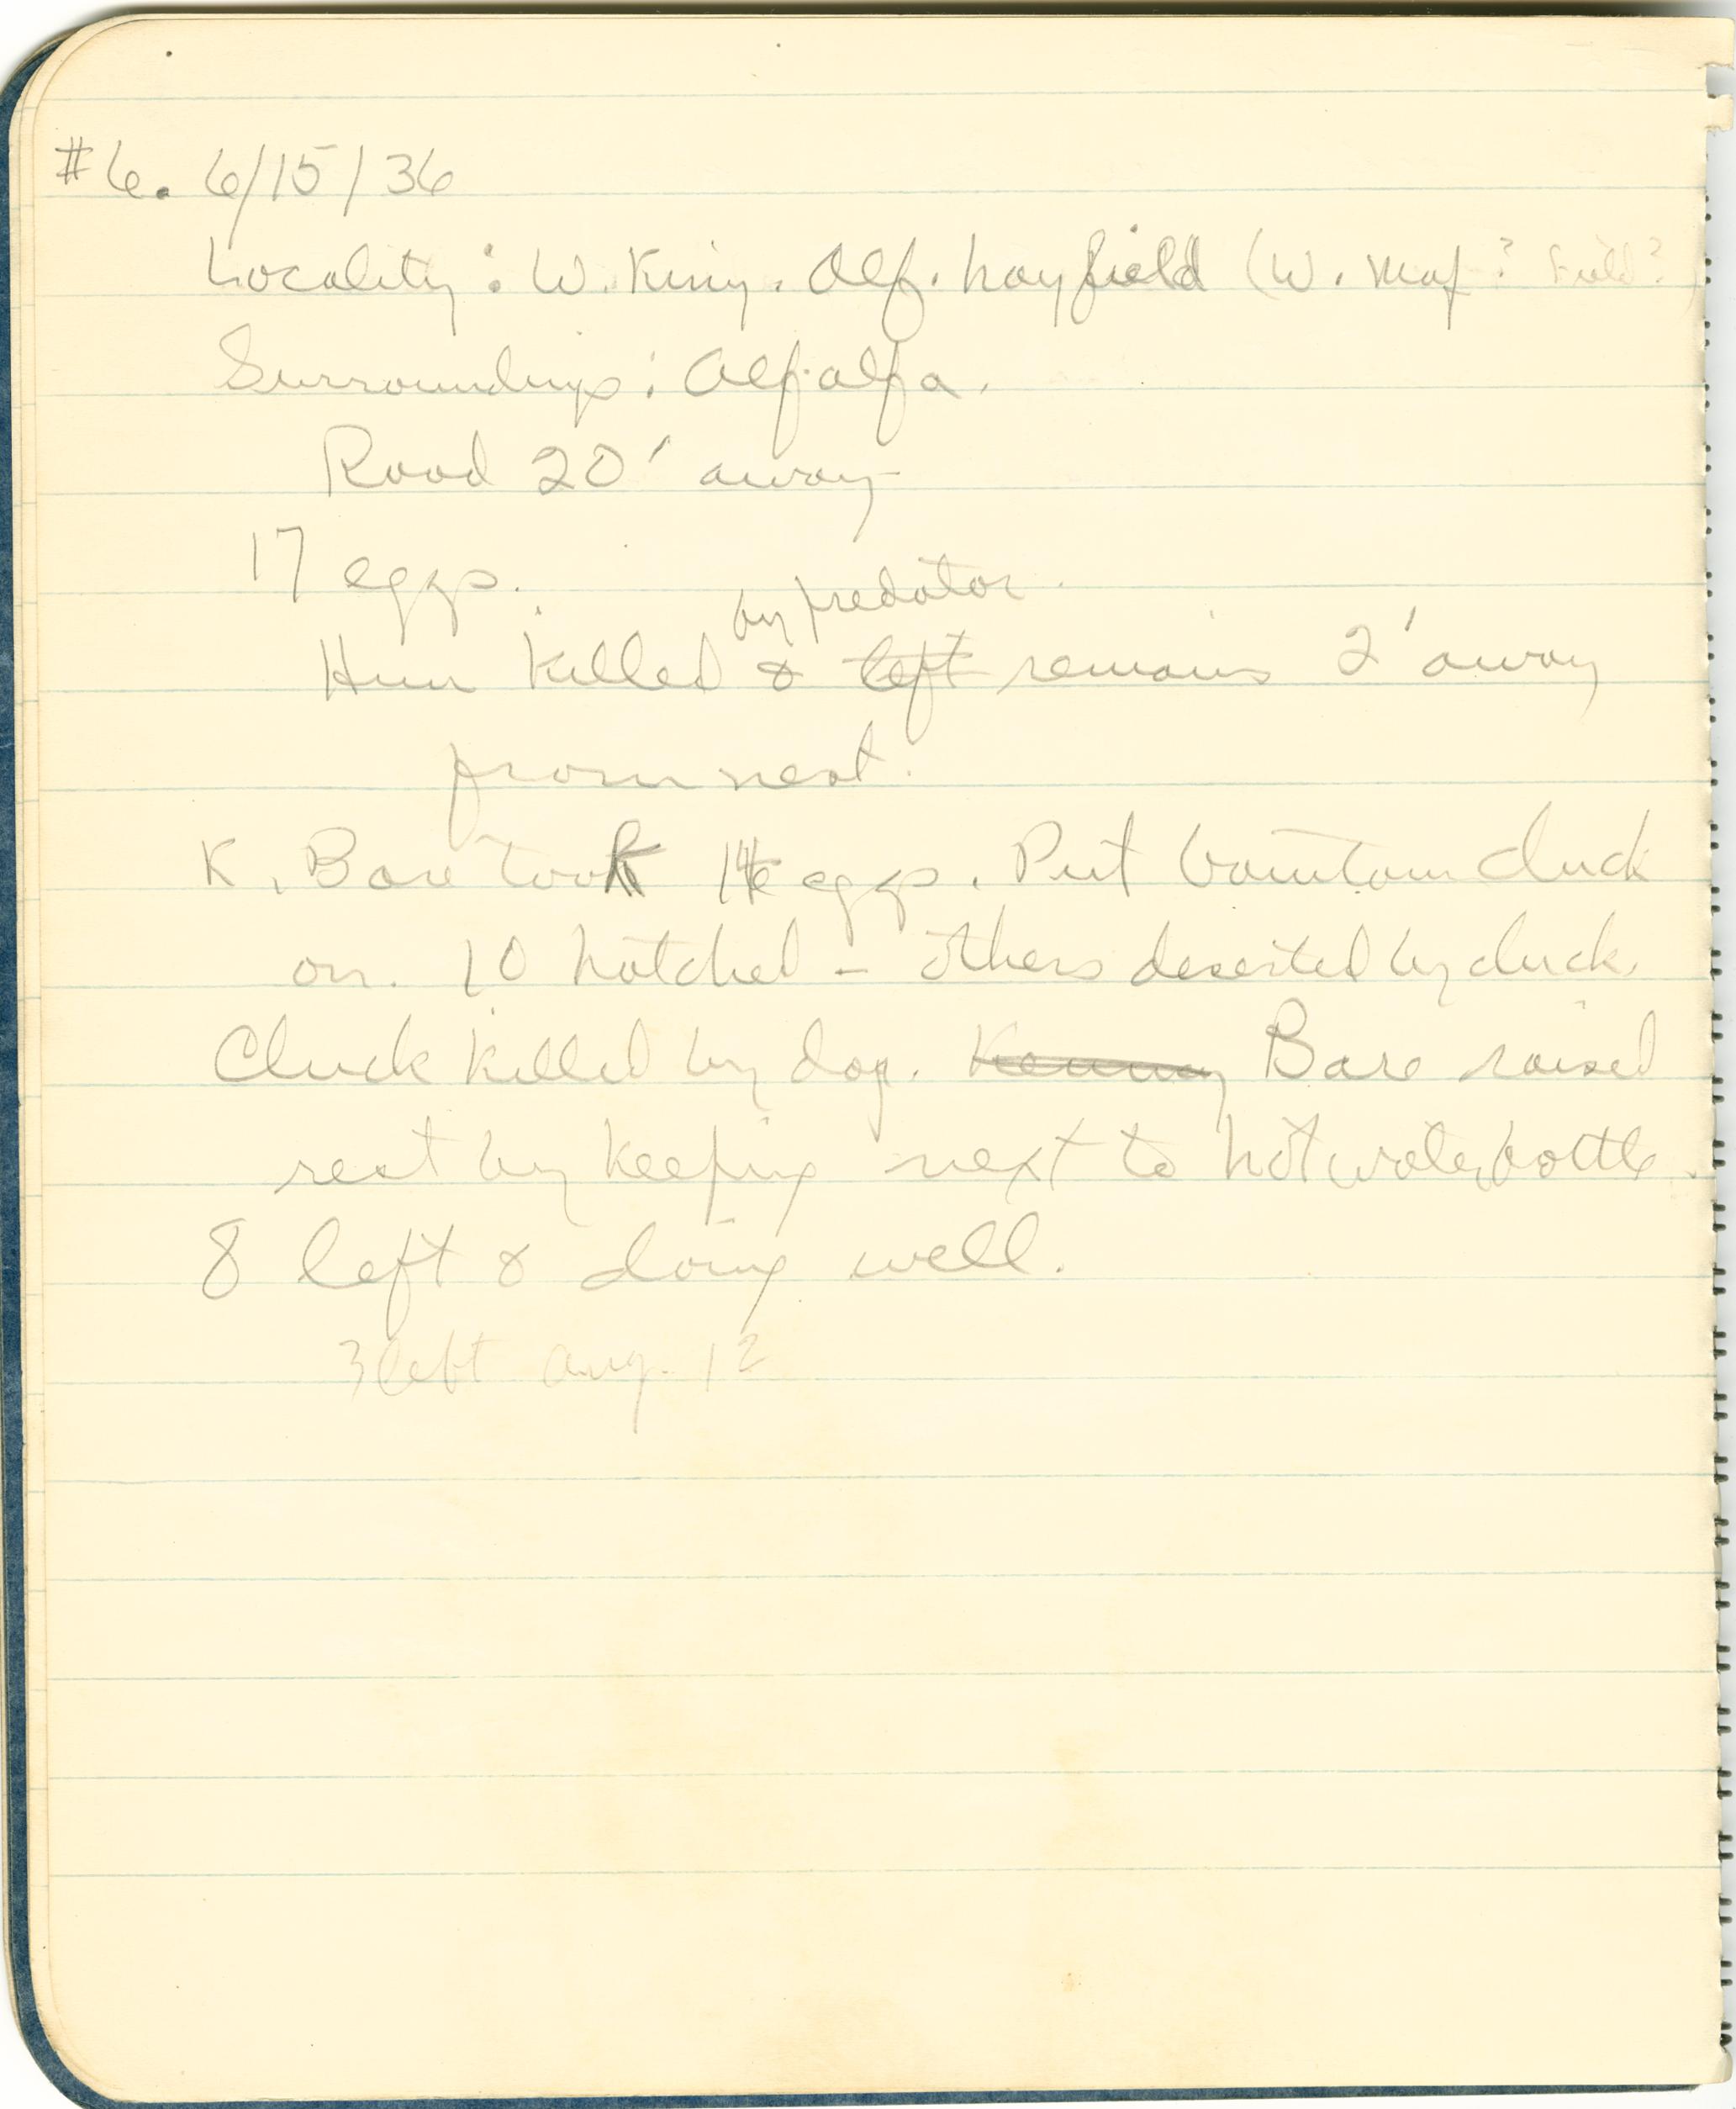 #6. 6/15/36
Locality: W. King. Alf. hayfield (W. Maf? Field?)
Surroundings: Alfalfa.
Road 20' away
17 eggs.
by predator.
Hun killed & left remains 2' away
from nest.
K. Bare took 14 eggs. Put bantam cluck
on. 10 hatched - others deserted by cluck.
Cluck killed by dog. Kenny Bare raised
rest by keeping next to hot water bottle.
8 left & doing well.
3 left Aug. 12